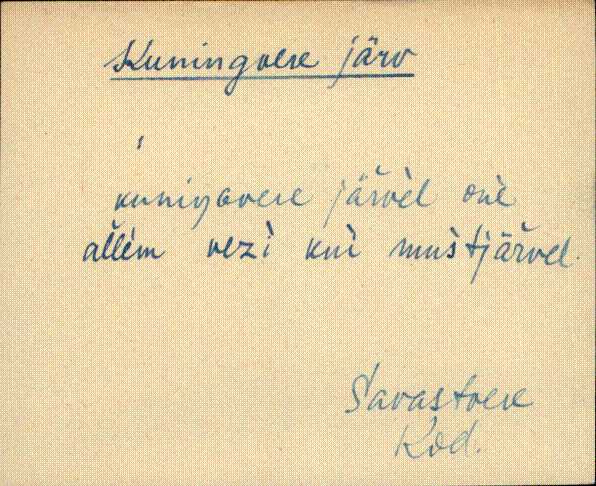 Kuningvere järv
kuniŋavere järvèl oǹè
ällem vezì kuì mus̀tjärvel.
Savastvere
Kod.